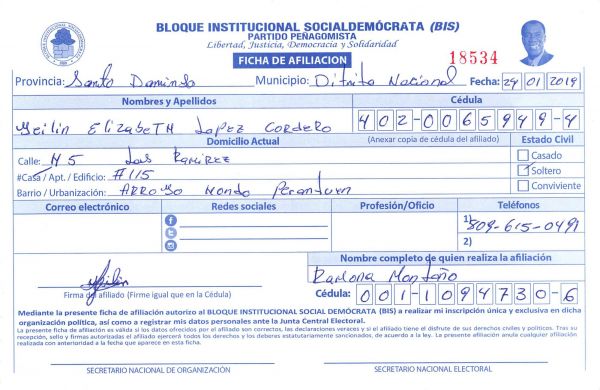 BLOQUE INSTITUCIONAL SOCIALDEMÓCRATA (BIS)
PARTIDO PEÑAGOMISTA
Libertad, Justicia, Democracia y Solidaridad
FICHA DE AFILIACION
18534
Provincia: Santo Domindo Municipio: Ditrito Nacional Fecha: 29 01 2019
Nombres y Apellidos Cédula
Yeilin ElizabeTH LoPez CorDero 402-0065949-4
Domicilio Actual (Anexar copia de cédula del afiliado) Estado Civil
Calle: M5 Las RamiRez Casado
#Casa / Apt. / Edificio: #115 Soltero
Barrio / Urbanización: ARROYO Hondo Conviviente
Correo electrónico Redes sociales Profesión/Oficio Teléfonos
1) 809-615-0491
2)
Nombre completo de quien realiza la afiliación
Ramona Montaño
Firma del afiliado (Firme igual que en la Cédula) Cédula: 001-1094730-6
Mediante la presente ficha de afiliación autorizo al BLOQUE INSTITUCIONAL SOCIAL DEMÓCRATA (BIS) a realizar mi inscripción única y exclusiva en dicha
organización política, así como a registrar mis datos personales ante la Junta Central Electoral.
La presente ficha de afiliación es válida si los datos ofrecidos por el afiliado son correctos, las declaraciones veraces y si el afiliado tiene el disfrute de sus derechos civiles y políticos. Tras su
recepción, sello y firmas autorizadas el afiliado ejercerá todos los derechos y los deberes estatutariamente sancionados, de acuerdo a la ley. La presente afiliación anula cualquier afiliación
realizada con anterioridad a la fecha que aparece en esta ficha.
SECRETARIO NACIONAL DE ORGANIZACIÓN SECRETARIO NACIONAL ELECTORAL